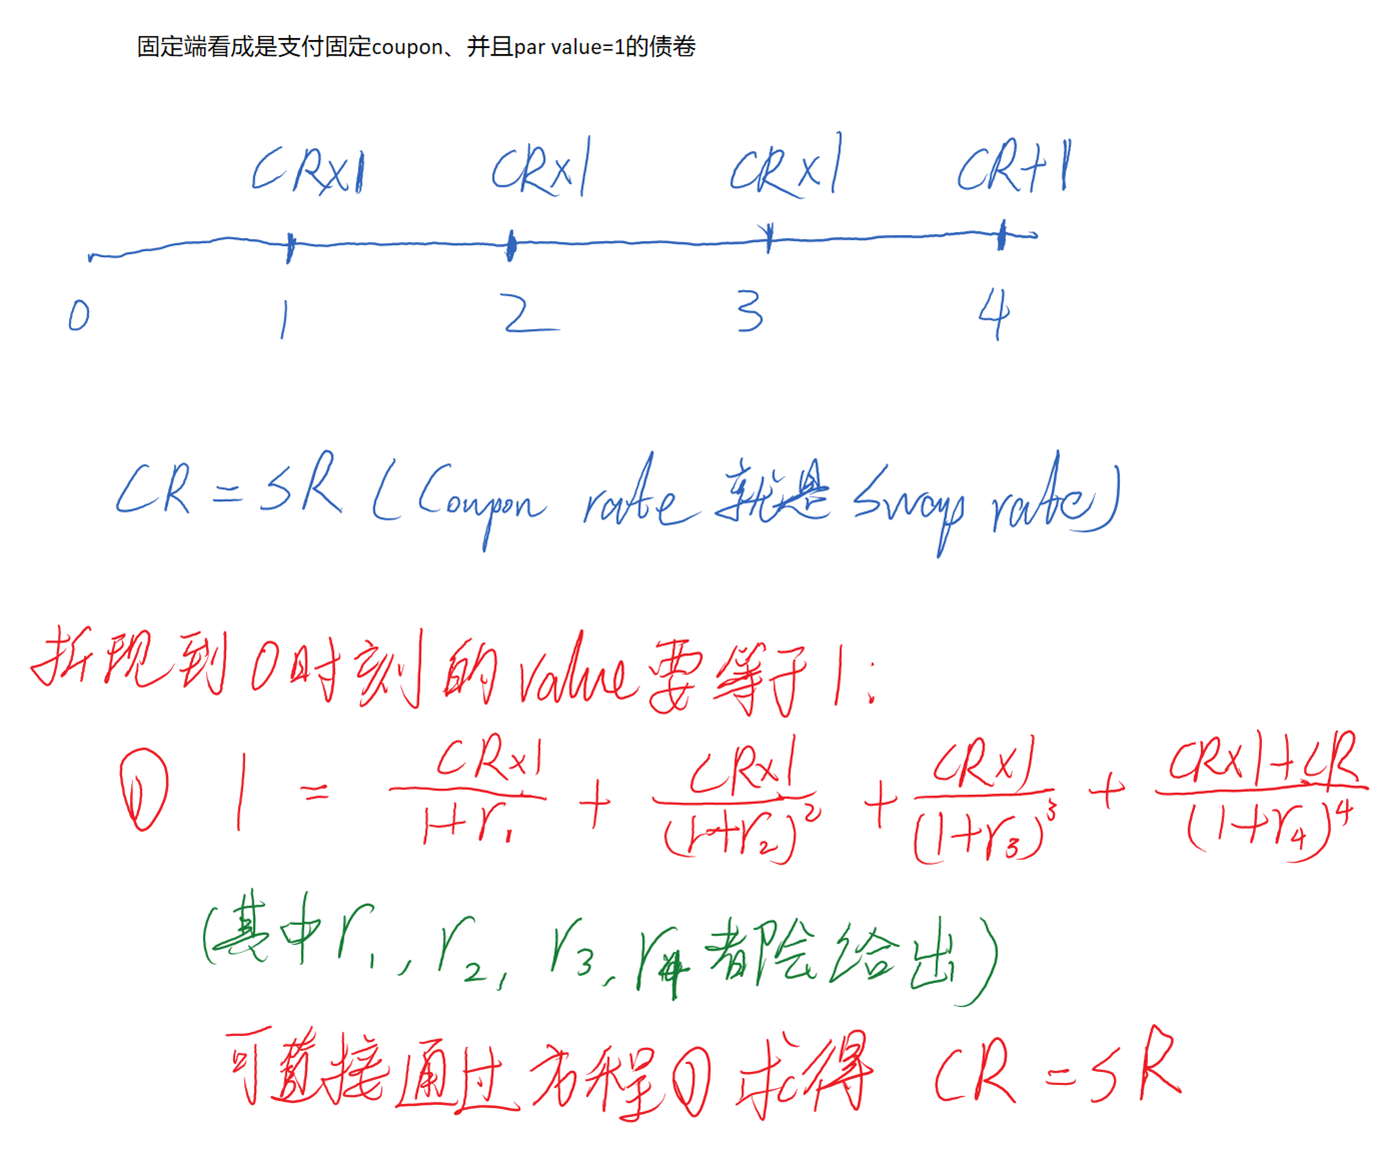 固定端看成是支付固定coupon、并且par value=1的债卷
CR×1 CR×1 CR×1 CR+1
0 1 2 3 4
CR=SR (Coupon rate 就是 Swap rate)
折现到0时刻的value要等于1:
① 1 = CR×1/(1+r₁) + CR×1/(1+r₂)² + CR×1/(1+r₃)³ + CR×1+CR/(1+r₄)⁴
(其中r₁, r₂, r₃, r₄都会给出)
可直接通过方程①求得 CR=SR